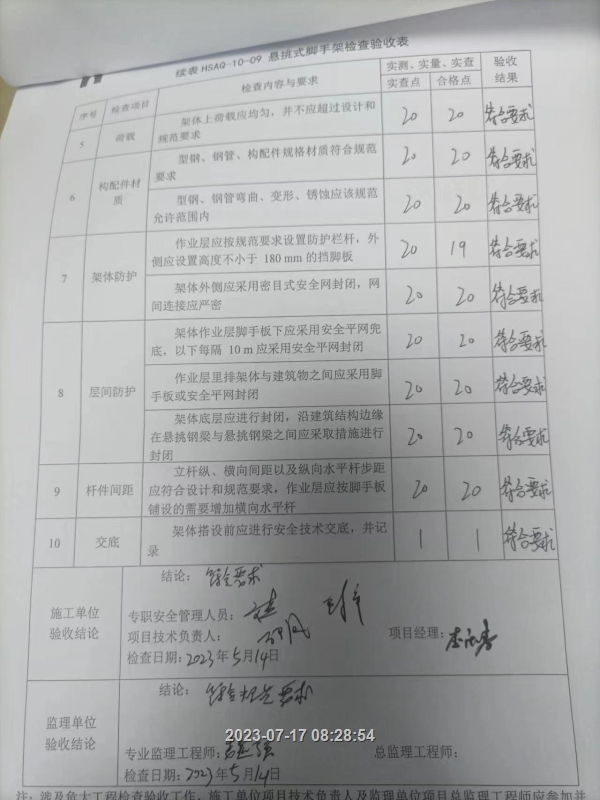 续表 HSAQ-10-09 悬挑式脚手架检查验收表
序号 检查项目 检查内容与要求 实测、实量、实查 验收结果
实查点 合格点
5 荷载 架体上荷载应均匀，并不应超过设计和
规范要求 20 20 符合要求
6 构配件材质 型钢、钢管、构配件规格材质符合规范
要求 20 20 符合要求
型钢、钢管弯曲、变形、锈蚀应该规范
允许范围内 20 20 符合要求
7 架体防护 作业层应按规范要求设置防护栏杆，外
侧应设置高度不小于 180 mm 的挡脚板 20 19 符合要求
架体外侧应采用密目式安全网封闭，网
间连接应严密 20 20 符合要求
8 层间防护 架体作业层脚手板下应采用安全平网兜
底，以下每隔 10 m 应采用安全平网封闭 20 20 符合要求
作业层里排架体与建筑物之间应采用脚
手板或安全平网封闭 20 20 符合要求
架体底层应进行封闭，沿建筑结构边缘
在悬挑钢梁与悬挑钢梁之间应采取措施进行
封闭 20 20 符合要求
9 杆件间距 立杆纵、横向间距以及纵向水平杆步距
应符合设计和规范要求，作业层应按脚手板
铺设的需要增加横向水平杆 20 20 符合要求
10 交底 架体搭设前应进行安全技术交底，并记
录 1 1 符合要求
施工单位
验收结论
结论： 符合要求
专职安全管理人员：
项目技术负责人： 项目经理：
检查日期：2023年5月14日
监理单位
验收结论
结论： 符合规范要求
2023-07-17 08:28:54
专业监理工程师： 总监理工程师：
检查日期：2023年5月14日
注：涉及危大工程检查验收工作，施工单位项目技术负责人及监理单位项目总监理工程师应参加并